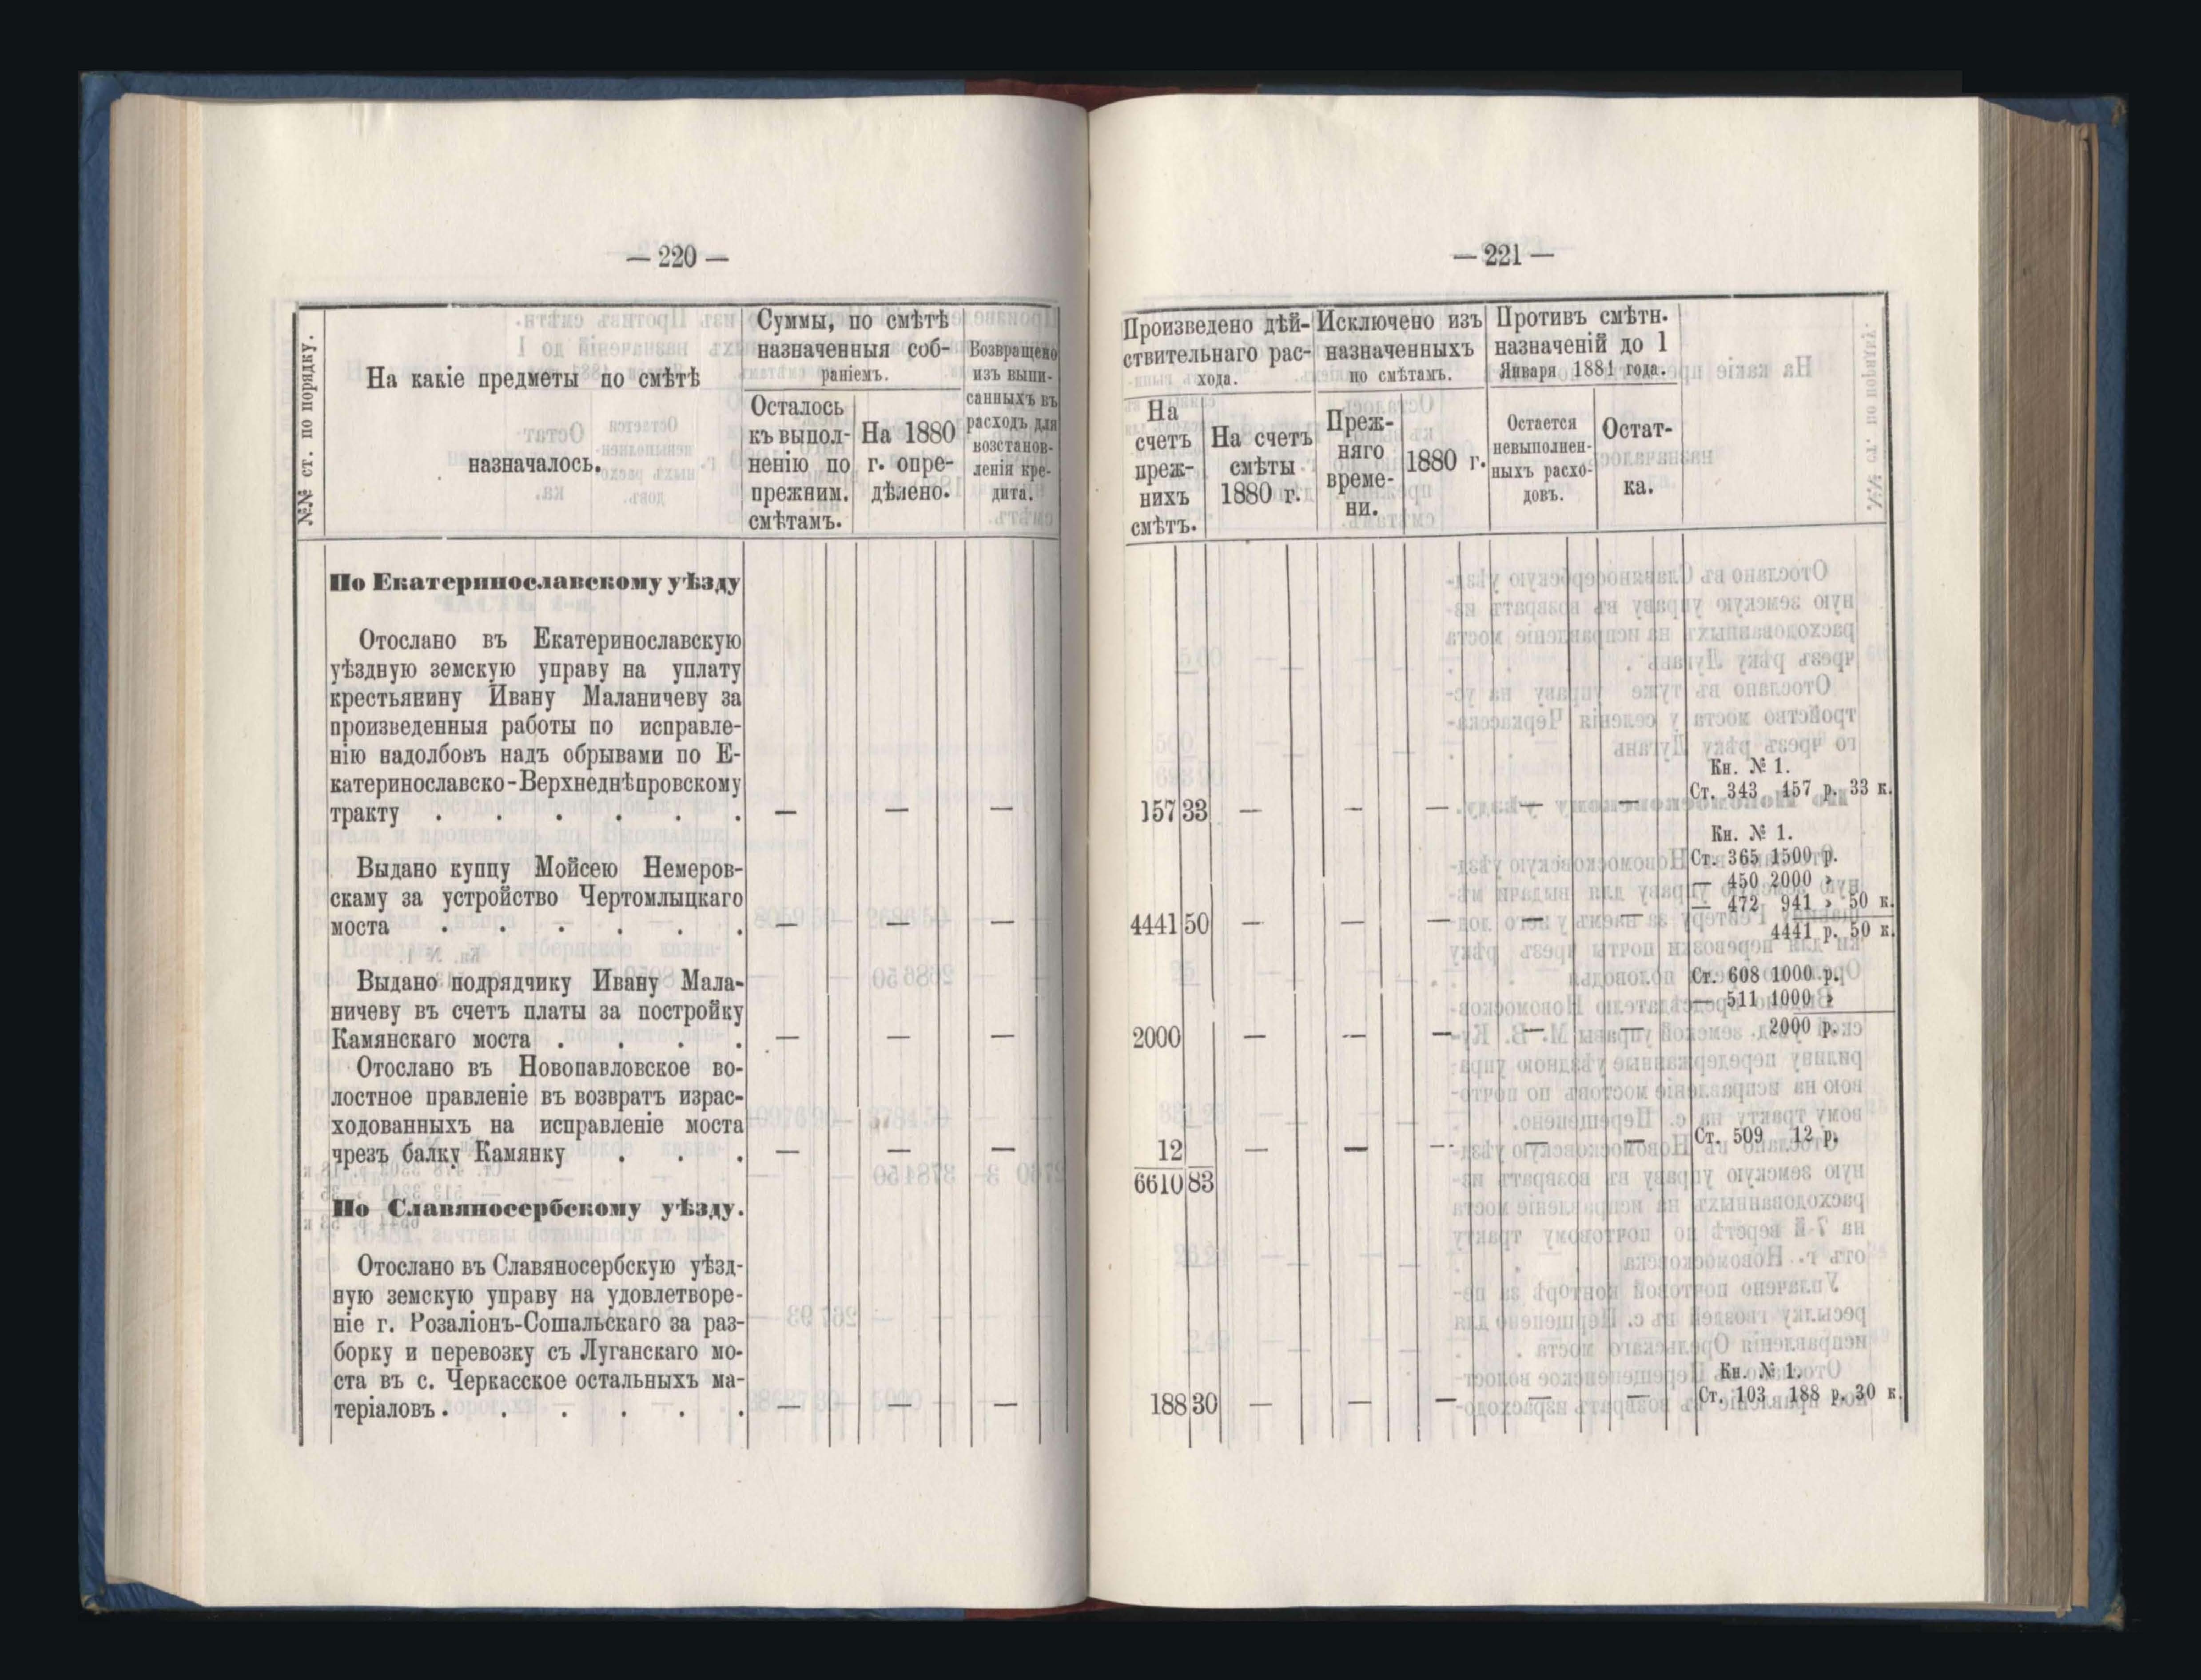 — 220 —
№№ ст. по порядку.
На какіе предметы по смѣтѣ
назначалось.
Суммы, по смѣтѣ
назначенныя соб-
раніемъ.
Осталось
къ выпол-
ненію по
прежним.
смѣтамъ.
На 1880
г. опре-
дѣлено.
Возвращено
изъ выпи-
санныхъ въ
расходъ для
возстанов-
ленія кре-
дита.
По Екатеринославскому уѣзду
Отослано въ Екатеринославскую
уѣздную земскую управу на уплату
крестьянину Ивану Маланичеву за
произведенныя работы по исправле-
нію надолбовъ надъ обрывами по Е-
катеринославско-Верхнеднѣпровскому
тракту . . . . . . — — —
Выдано купцу Мойсею Немеров-
скаму за устройство Чертомлыцкаго
моста . . . . . . — — —
Выдано подрядчику Ивану Мала-
ничеву въ счетъ платы за постройку
Камянскаго моста . . . . — — —
Отослано въ Новопавловское во-
лостное правленіе въ возвратъ израс-
ходованныхъ на исправленіе моста
чрезъ балку Камянку . . . — — —
По Славяносербскому уѣзду.
Отослано въ Славяносербскую уѣзд-
ную земскую управу на удовлетворе-
ніе г. Розаліонъ-Сошальскаго за раз-
борку и перевозку съ Луганскаго мо-
ста въ с. Черкасское остальныхъ ма-
теріаловъ . . . . . . — — —
— 221 —
Произведено дѣй-
ствительнаго рас-
хода.
На
счетъ
преж-
нихъ
смѣтъ.
На счетъ
смѣты
1880 г.
Исключено изъ
назначенныхъ
по смѣтамъ.
Преж-
няго
време-
ни.
1880 г.
Противъ смѣтн.
назначеній до 1
Января 1881 года.
Остается
невыполнен-
ныхъ расхо-
довъ.
Остат-
ка.
Кн. № 1.
157 33 — — — — — Ст. 343 157 р. 33 к.
Кн. № 1.
Ст. 365 1500 р.
— 450 2000 »
— 472 941 » 50 к.
4441 50 — — — — — 4441 р. 50 к.
Ст. 608 1000 р.
— 511 1000 »
2000 — — — — — 2000 р.
12 — — — — — Ст. 509 12 р.
6610 83
Кн. № 1.
188 30 — — — — — Ст. 103 188 р. 30 к.